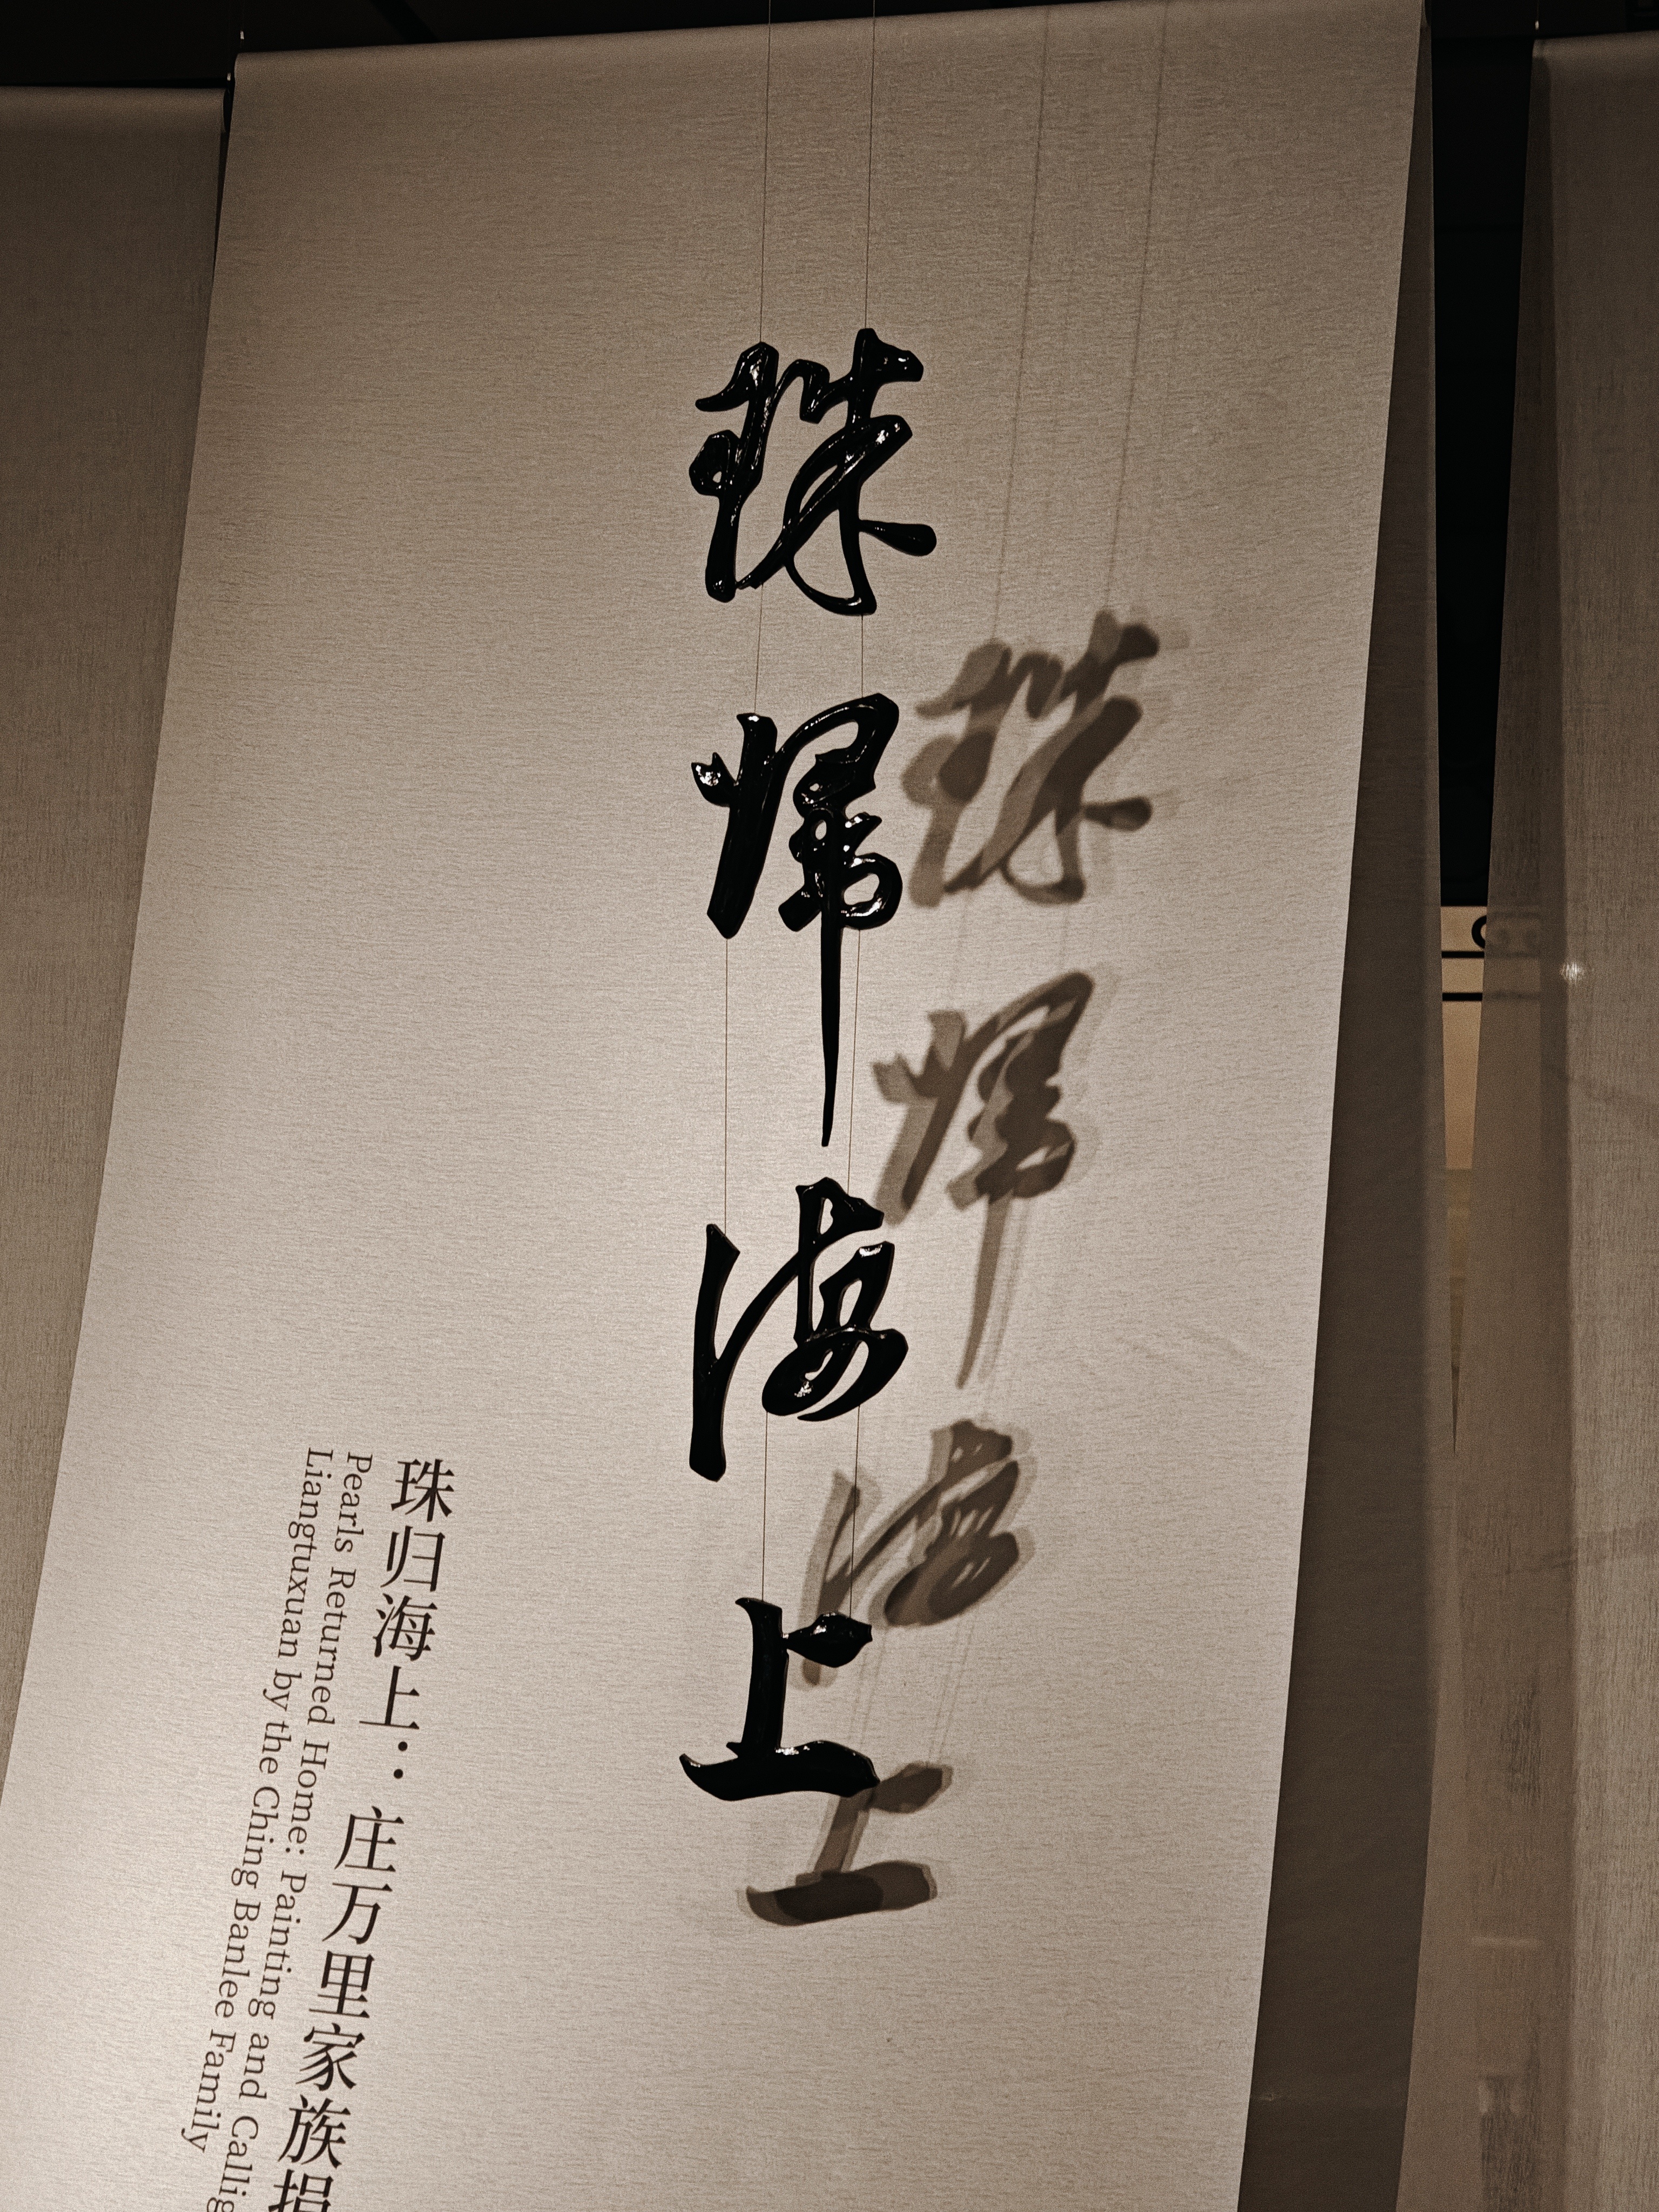 珠歸海上
珠归海上：庄万里家族捐
Pearls Returned Home: Painting and Callig
Liangtuxuan by the Ching Banlee Family